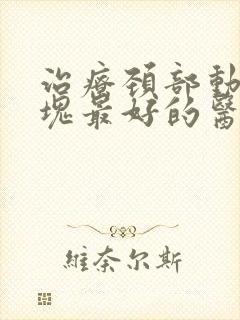 治療頚部動
塊最好的醫
維奈尔斯